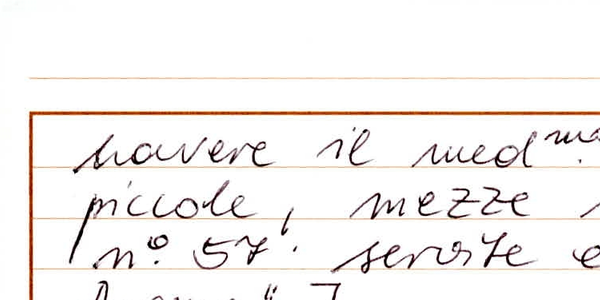 havere il med.mo
piccole, mezze
n.º 57. servite e